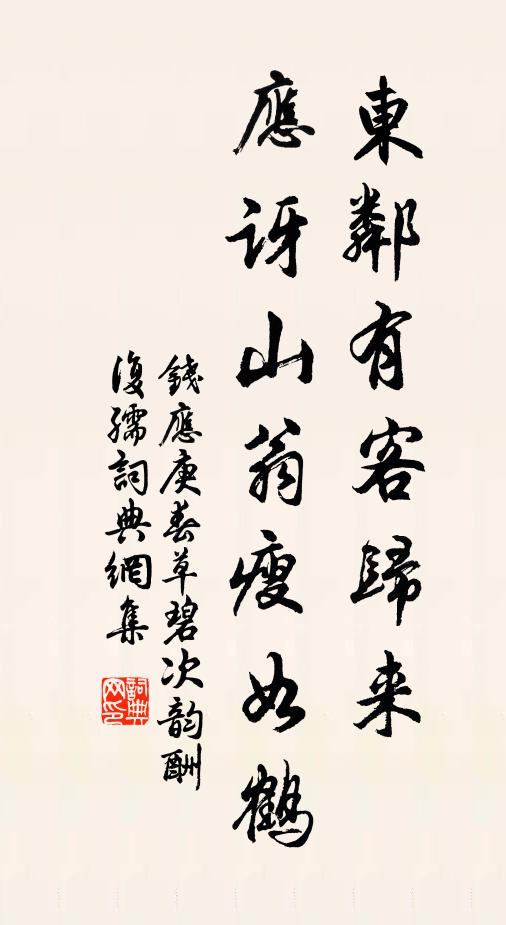 東鄰有客歸来
應訝山翁瘦如鶴
錢應庚春草碧次韵酬
復孺詞典網集
詞典网印